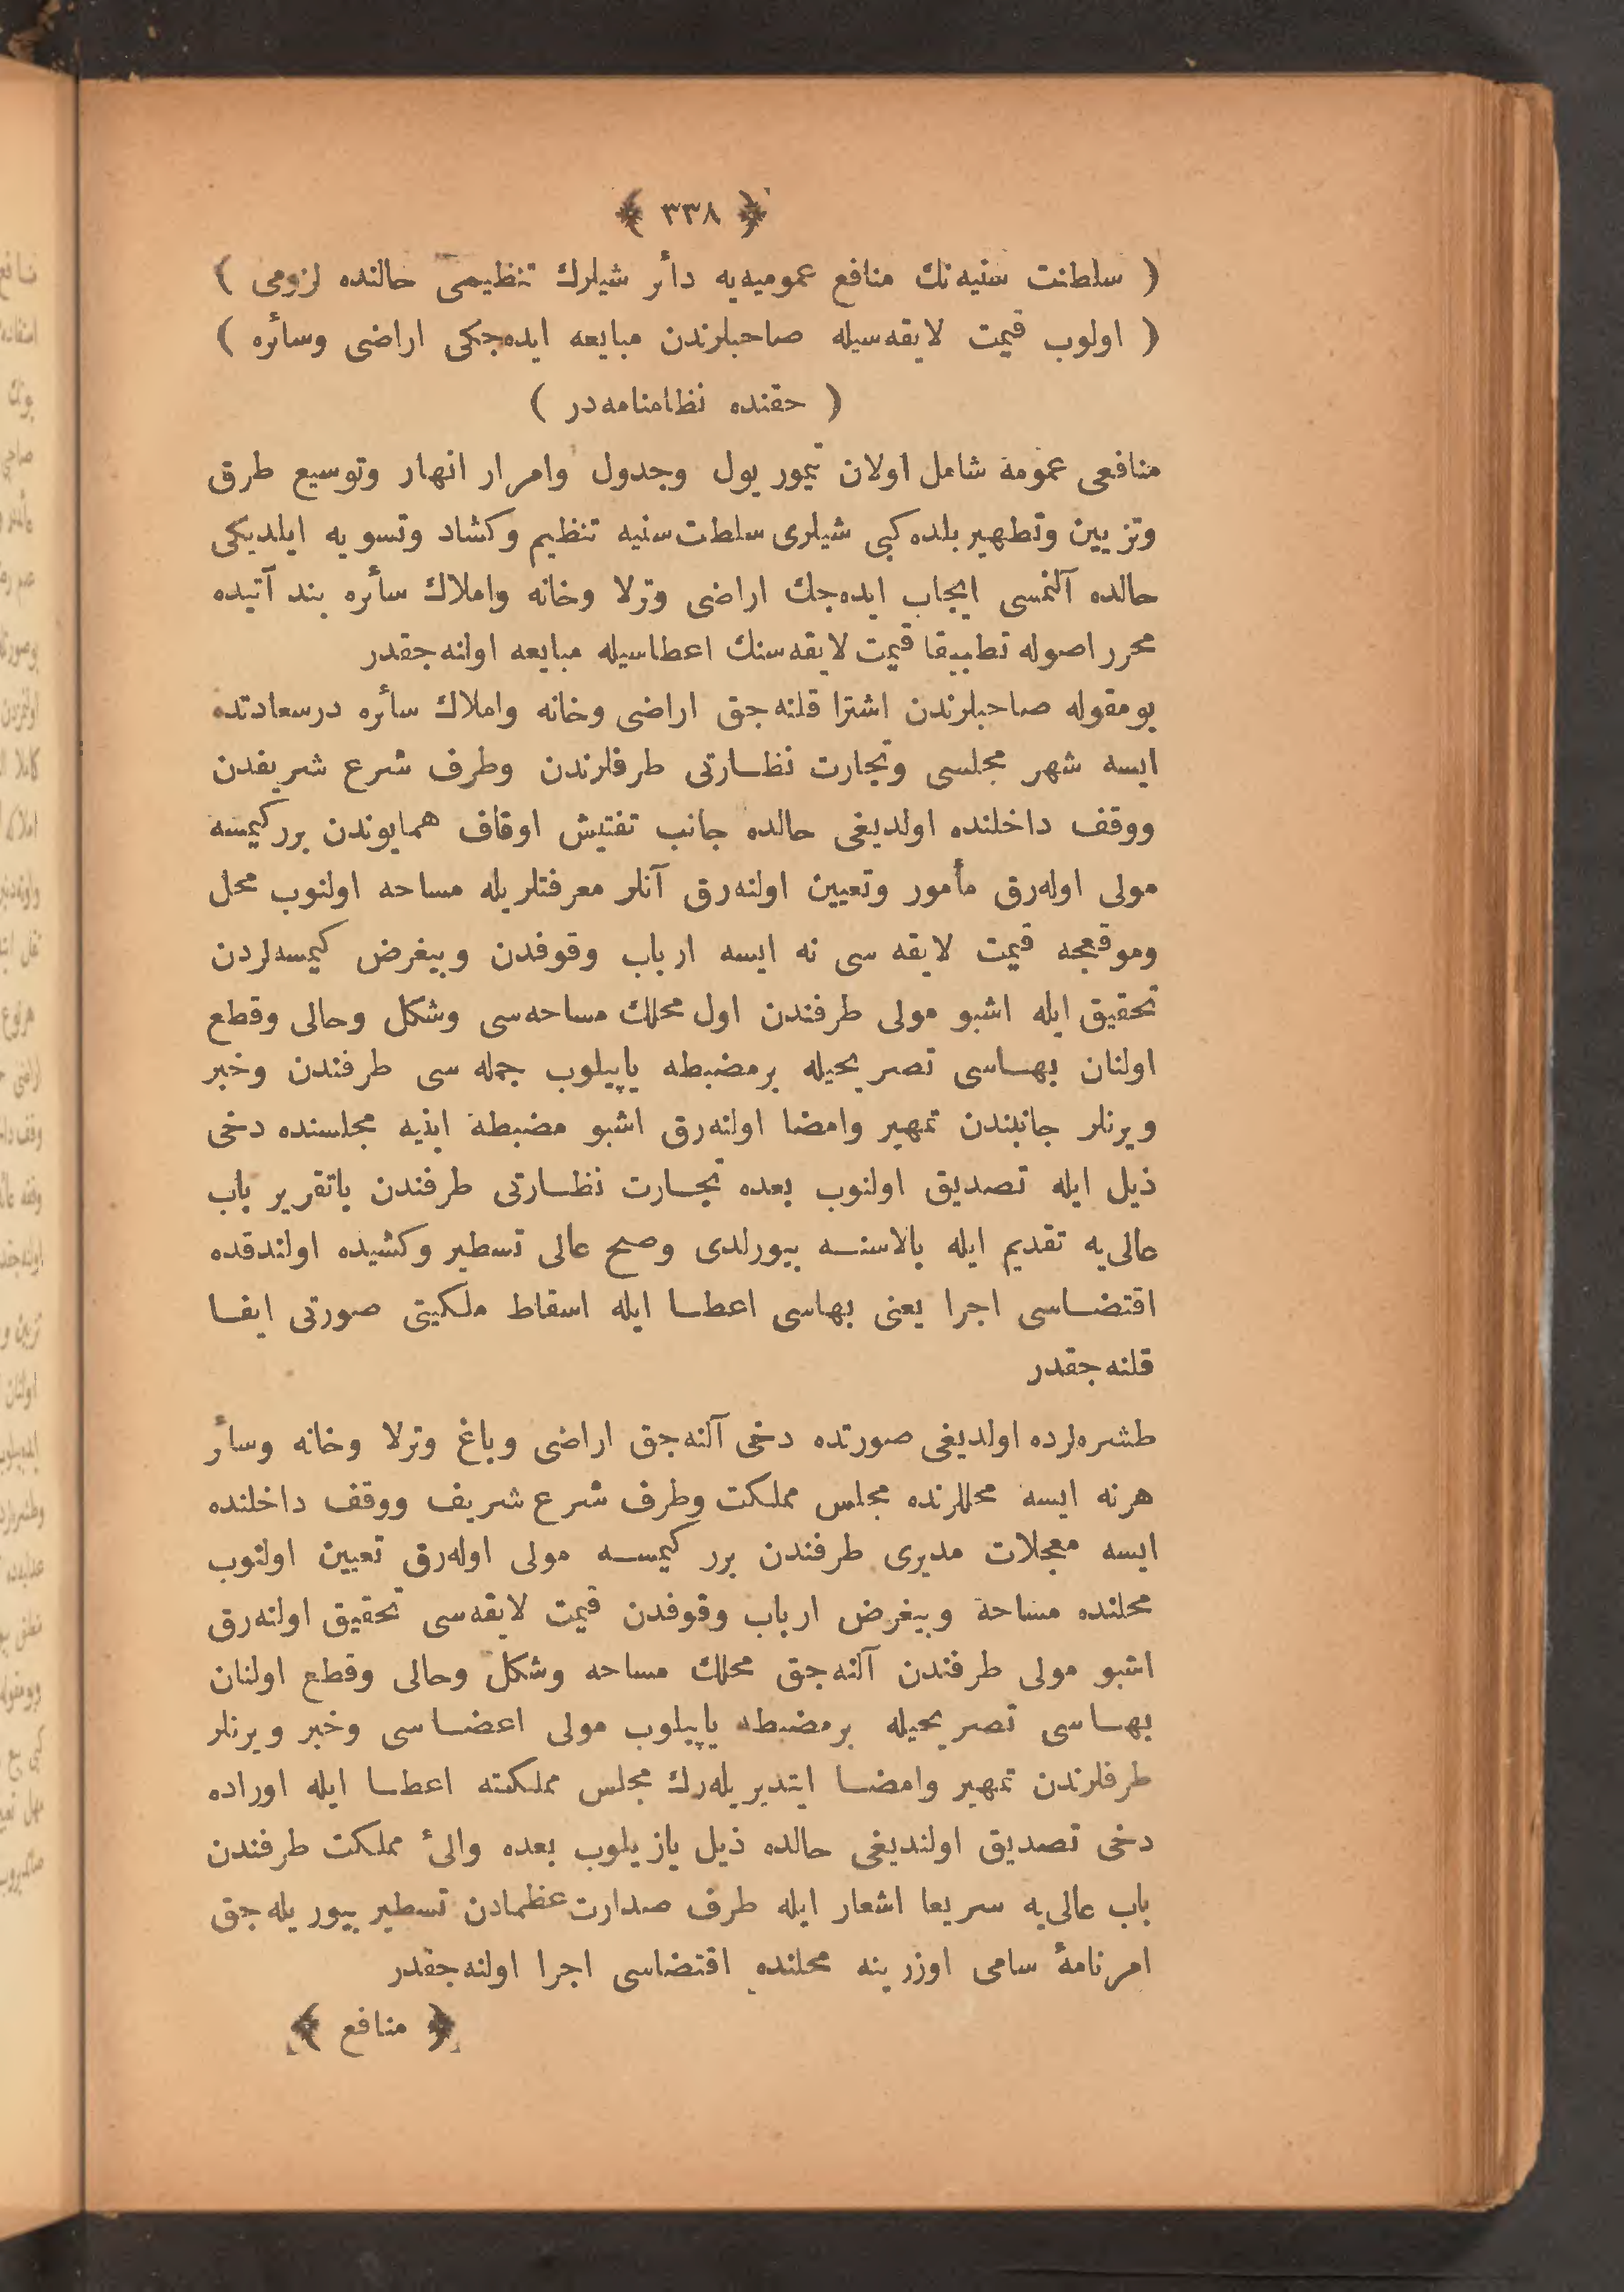 ﴿ ٣٣٨ ﴾
( سلطنت سنیه‌نك منافع عمومیه‌یه دائر شیلرك تنظیمی حالنده لزومی )
( اولوب قیمت لایقه‌سیله صاحبلرندن مبایعه ایده‌جکی اراضی وسائره )
( حقنده نظامنامه‌در )
منافعی عمومه شامل اولان تیمور یول وجدول وامرار انهار وتوسیع طرق
وتزیین وتطهیر بلده کبی شیلری سلطنت سنیه تنظیم وکشاد وتسویه ایلدیکی
حالده آلنمسی ایجاب ایده‌جك اراضی وترلا وخانه واملاك سائره بند آتیده
محرر اصوله تطبیقا قیمت لایقه‌سنك اعطاسیله مبایعه اولنه‌جقدر
بو مقوله صاحبلرندن اشترا قلنه‌جق اراضی وخانه واملاك سائره درسعادتده
ایسه شهر مجلسی وتجارت نظارتی طرفلرندن وطرف شرع شریفدن
ووقف داخلنده اولدیغی حالده جانب تفتیش اوقاف همایوندن برر کیمسه
مولی اوله‌رق مأمور وتعیین اولنه‌رق آنلر معرفتلریله مساحه اولنوب محل
وموقعجه قیمت لایقه سی نه ایسه ارباب وقوفدن وبیغرض کیمسه‌لردن
تحقیق ایله اشبو مولی طرفندن اول محلك مساحه‌سی وشکل وحالی وقطع
اولنان بهاسی تصریحیله بر مضبطه یاپیلوب جمله سی طرفندن وخبر
ویرنلر جانبندن تمهیر وامضا اولنه‌رق اشبو مضبطه ابنیه مجلسنده دخی
ذیل ایله تصدیق اولنوب بعده تجارت نظارتی طرفندن باتقریر باب
عالی‌یه تقدیم ایله بالاسنه بیورلدی وصح عالی تسطیر وکشیده اولندقده
اقتضاسی اجرا یعنی بهاسی اعطا ایله اسقاط ملکیتی صورتی ایفا
قلنه‌جقدر
طشره‌لرده اولدیغی صورتده دخی آلنه‌جق اراضی وباغ وترلا وخانه وسائر
هرنه ایسه محللرنده مجلس مملکت وطرف شرع شریف ووقف داخلنده
ایسه معجلات مدیری طرفندن برر کیمسه مولی اوله‌رق تعیین اولنوب
محلنده مساحه وبیغرض ارباب وقوفدن قیمت لایقه‌سی تحقیق اولنه‌رق
اشبو مولی طرفندن آلنه‌جق محلك مساحه وشکل وحالی وقطع اولنان
بهاسی تصریحیله بر مضبطه یاپیلوب مولی اعضاسی وخبر ویرنلر
طرفلرندن تمهیر وامضا ایتدیریله‌رك مجلس مملکته اعطا ایله اوراده
دخی تصدیق اولندیغی حالده ذیل یازیلوب بعده والئ مملکت طرفندن
باب عالی‌یه سریعا اشعار ایله طرف صدارت عظمادن تسطیر بیوریله‌جق
امرنامهٔ سامی اوزرینه محلنده اقتضاسی اجرا اولنه‌جقدر
﴿ منافع ﴾